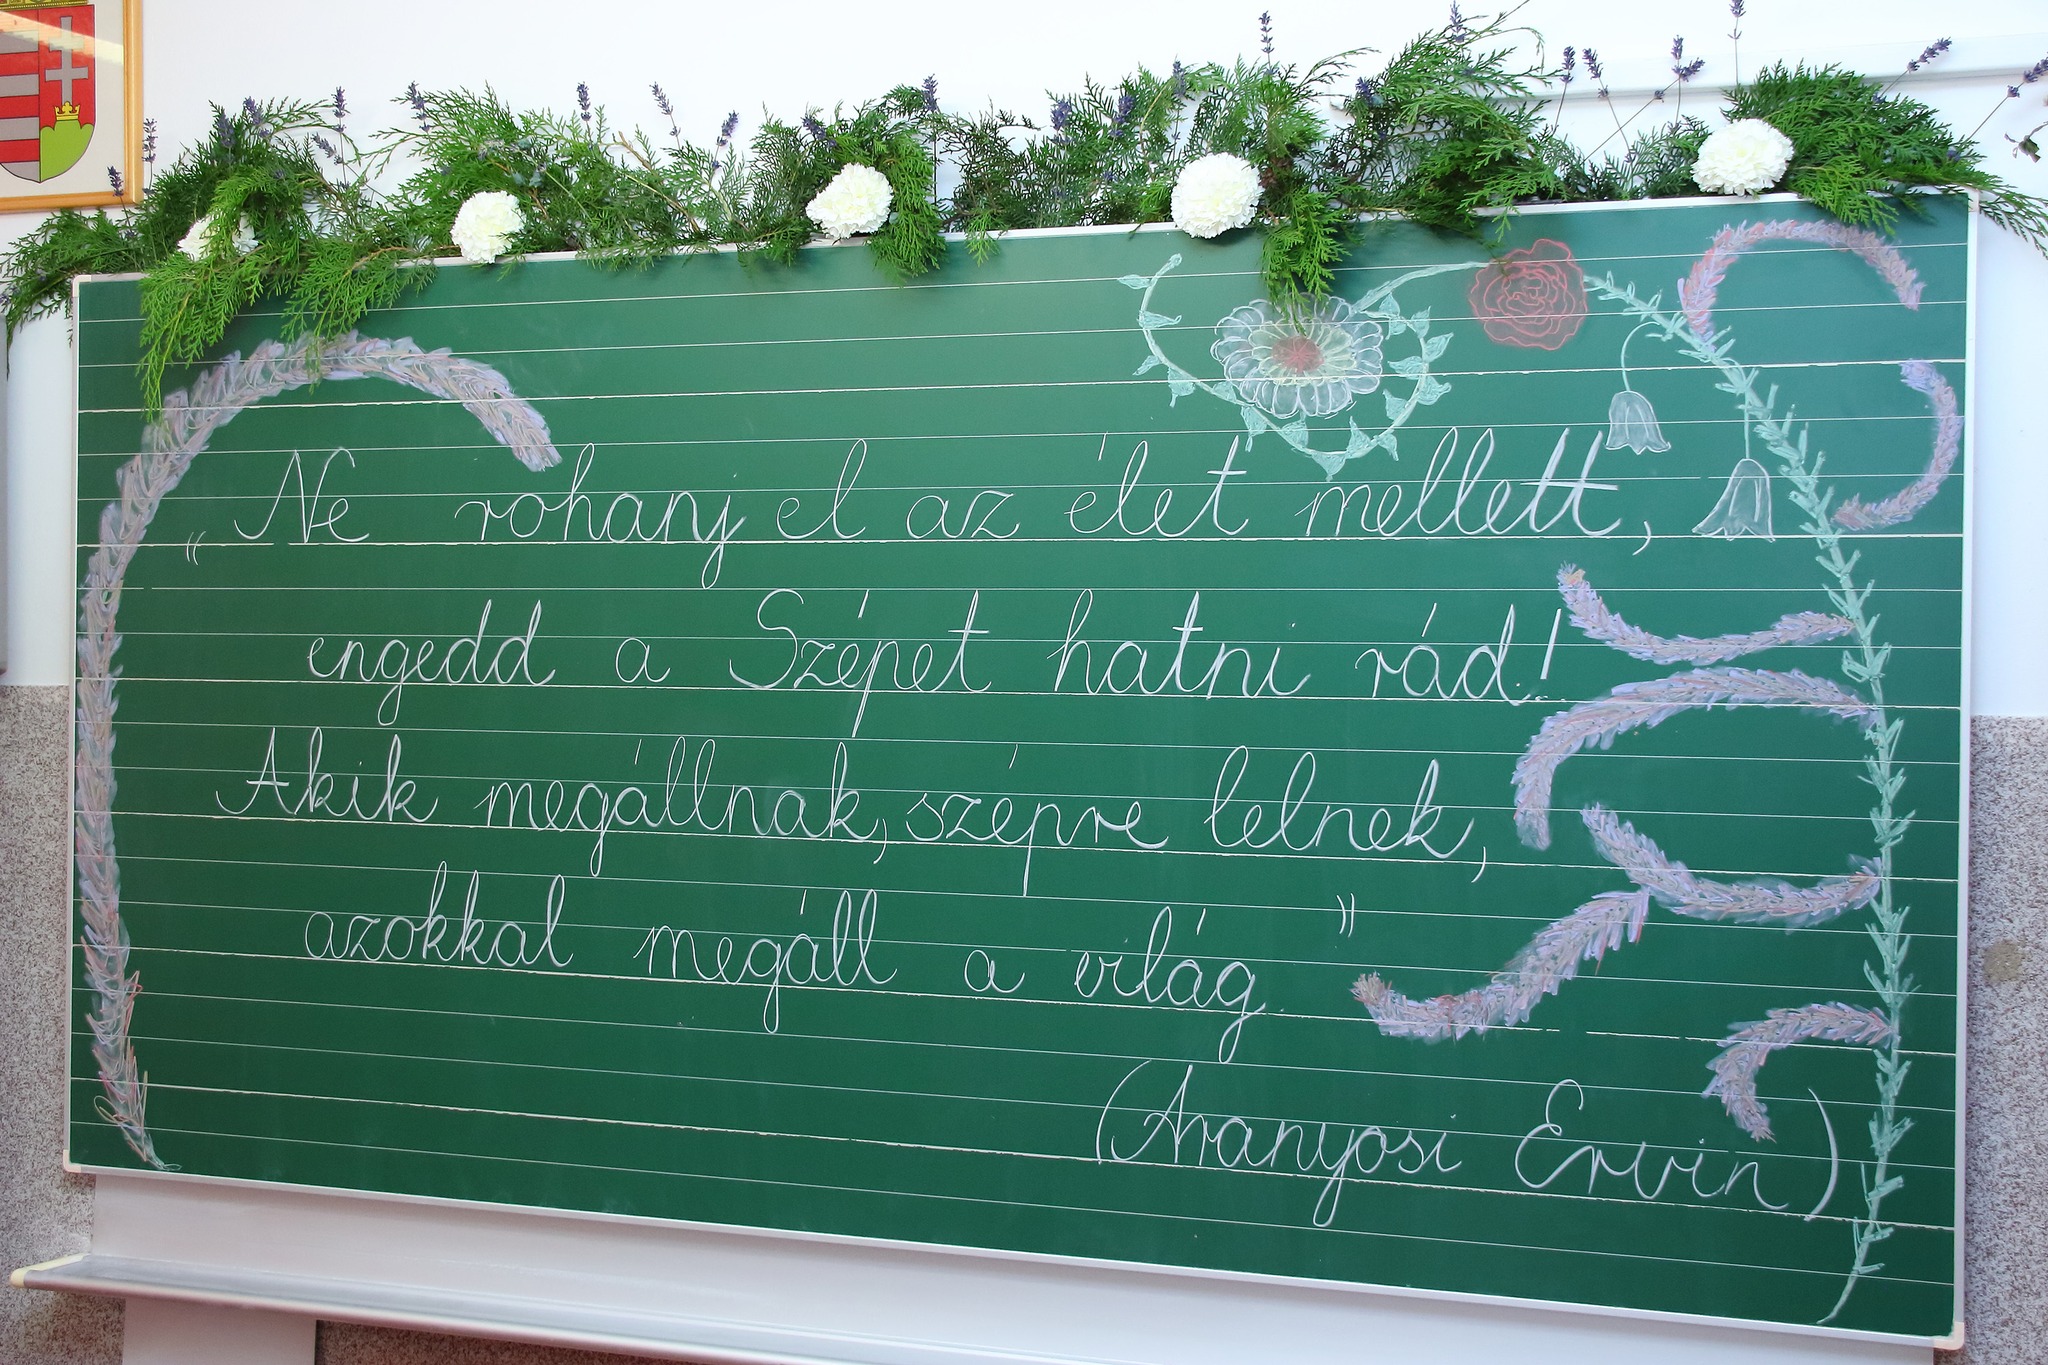 „Ne rohanj el az élet mellett,
engedd a Szépet hatni rád!
Akik megállnak, szépre lelnek,
azokkal megáll a világ”
(Aranyosi Ervin)